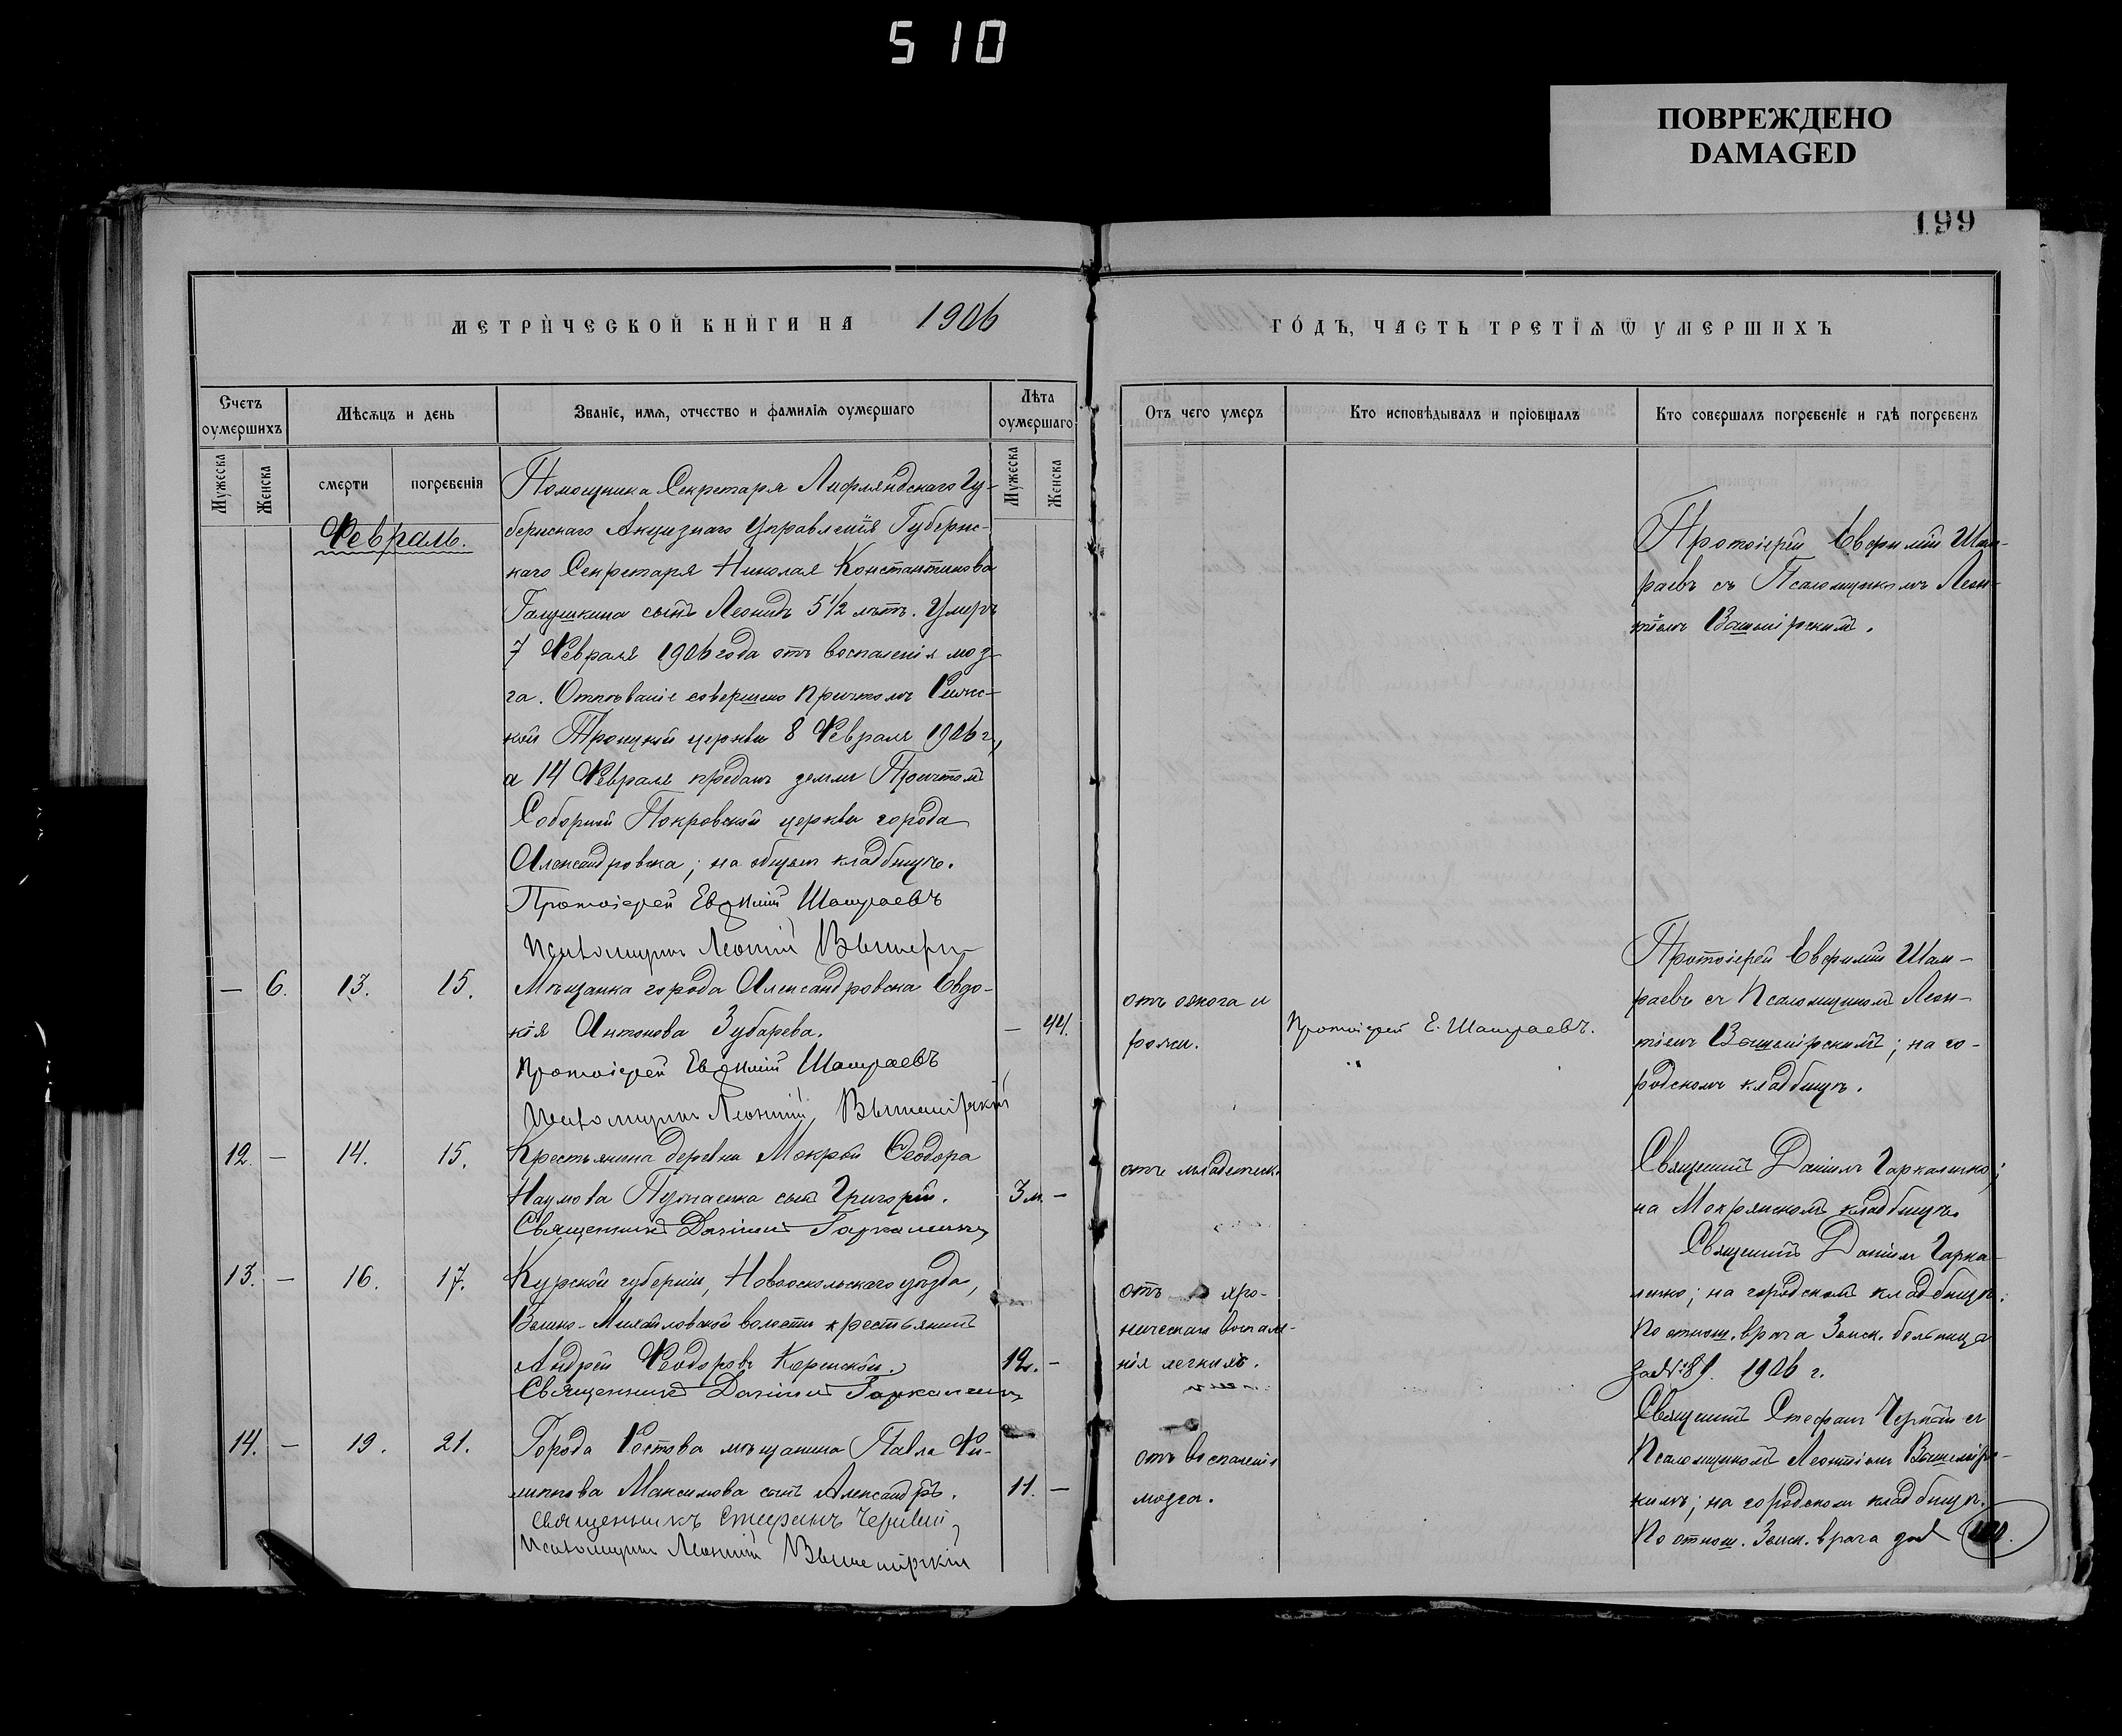 510
ПОВРЕЖДЕНО
DAMAGED
199
МЕТРИЧЕСКОЙ КНИГИ НА 1906
ГОДЪ, ЧАСТЬ ТРЕТІѦ Ѿ УМЕРШИХЪ
Счетъ оумершихъ
Мѣсѧцъ и день
Званіе, имѧ, отчество и фамиліѧ оумершаго
Лѣта оумершаго
Отъ чего умеръ
Кто исповѣдывалъ и пріобщалъ
Кто совершалъ погребеніе и гдѣ погребенъ
Мужеска
Женска
смерти
погребенія
Мужеска
Женска
Февраль.
Помощника Секретаря Лифляндскаго Гу-
бернскаго Акцизнаго Управленія Губернс-
каго Секретаря Николая Константинова
Галушкина сынъ Леонидъ 5 1/2 лѣтъ. Умеръ
7 Февраля 1906 года отъ воспаленія моз-
га. Отпѣваніе совершено причтомъ Рижс-
кой Троицкой церкви 8 Февраля 1906 г.,
а 14 Февраля преданъ земли Причтомъ
Соборной Покровской церкви города
Александровска; на общем кладбищѣ.
Протоіерей Евфимій
Псаломщикъ Леонтій
Протоіерей Евфимій
раевъ съ Псаломщикомъ Леон-
тіемъ Вышемірскимъ.
— 6. 13. 15. Мѣщанка города Александровска Евдо-
кія Антонова Зубарева. — 44.
Протоіерей Евфимій
Псаломщикъ Леонтій Вышемірскій
отъ ожога и
рожи.
Протоіерей Е.
Протоіерей Евфимій
раевъ съ Псаломщикомъ Леон-
тіемъ Вышемірскимъ; на го-
родскомъ кладбищѣ.
12. — 14. 15. Крестьянина деревни Мокрой Ѳеодора
Наумова сынъ Григорій. 3 м. —
Священникъ Даніилъ Гаркаленко
отъ младенческ.
Священникъ Даніилъ Гаркаленко;
на Мокрянскомъ кладбищѣ.
13. — 16. 17. Курской губерніи, Новооскольскаго уѣзда,
Михайловской волости крестьянинъ
Андрей Ѳеодоровъ 12. —
Священникъ Даніилъ Гаркаленко
отъ хро-
ническаго воспале-
нія легкихъ.
Священникъ Даніилъ Гарка-
ленко; на городскомъ кладбищѣ.
По отнош. врача Земск. больницы
за № 81. 1906 г.
14. — 19. 21. Города Ростова мѣщанина Павла Фи-
липпова Максимова сынъ Александръ. 11. —
Священникъ Стефанъ
Псаломщикъ Леонтій Вышемірскій
отъ воспаленія
мозга.
Священникъ Стефанъ съ
Псаломщикомъ Леонтіемъ Вышемірс-
кимъ; на городскомъ кладбищѣ.
По отнош. Земск. врача за №